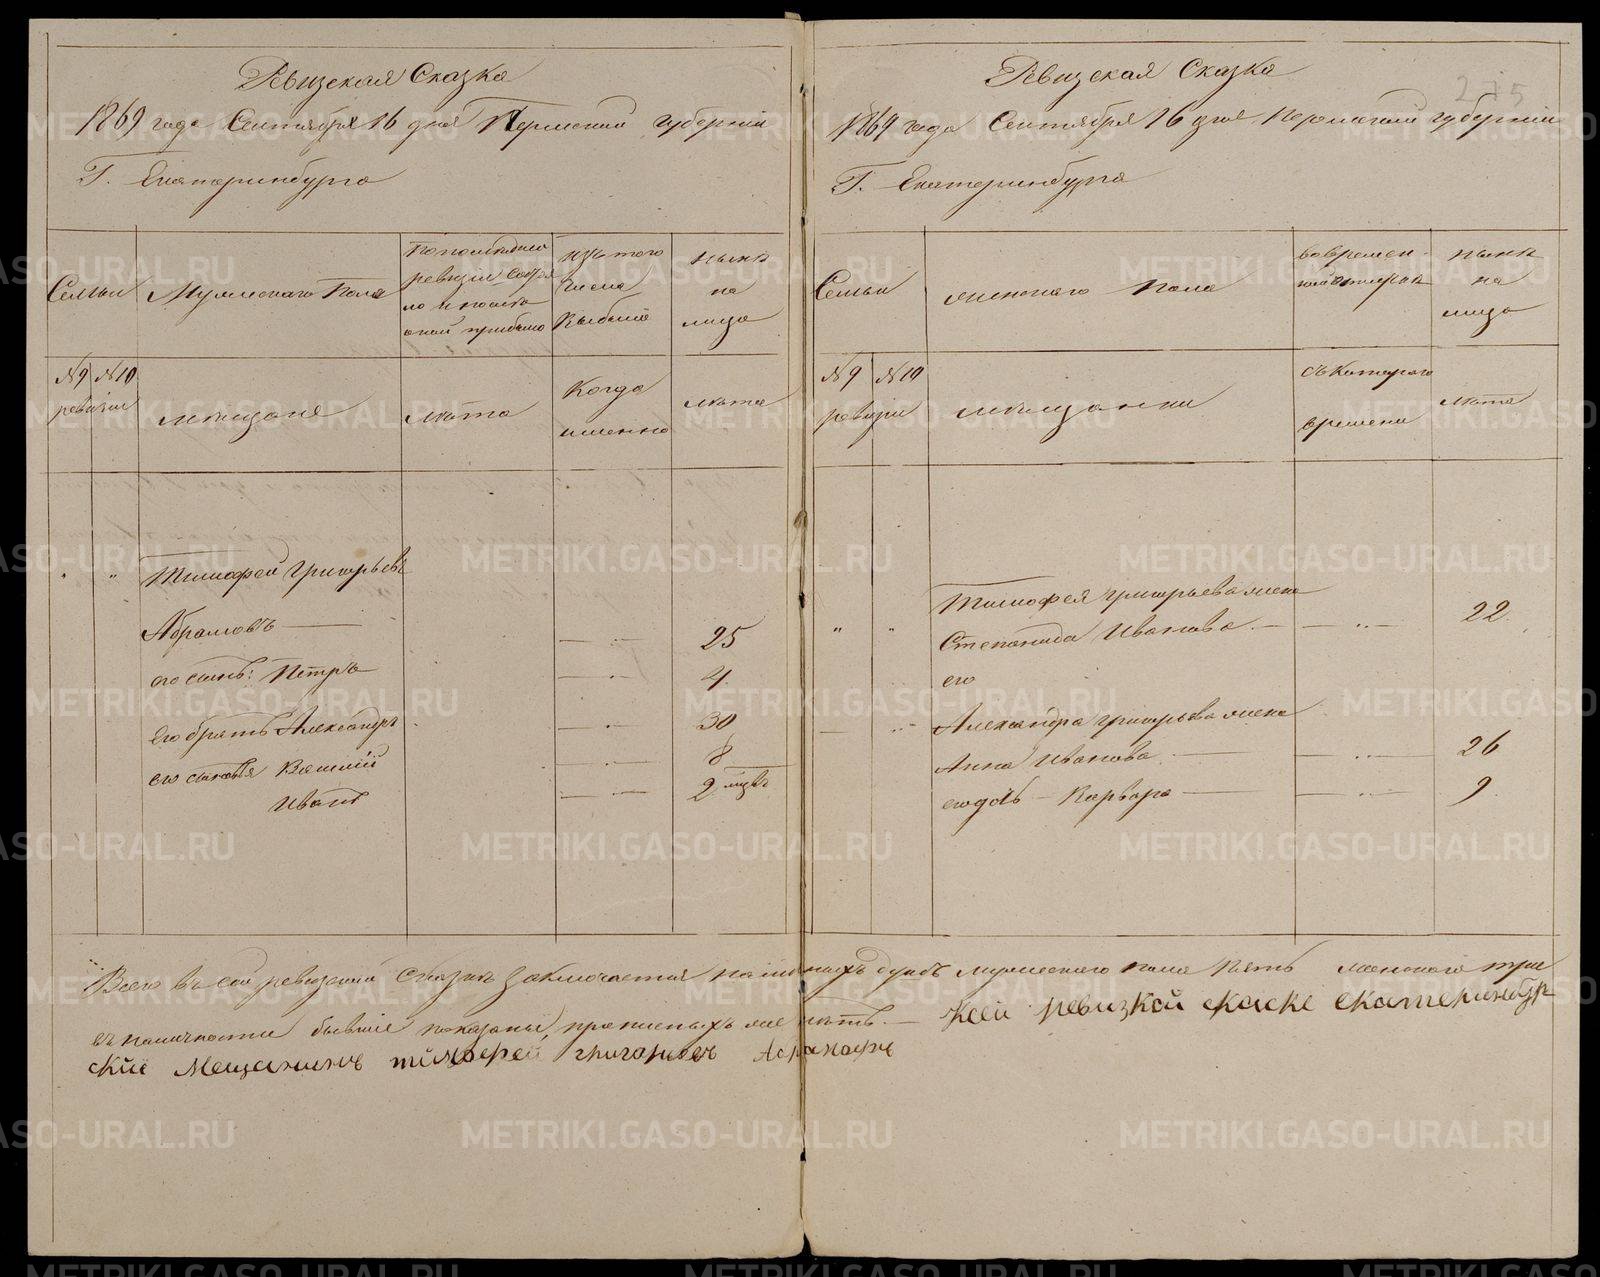 Ревизская Сказка
1869 года Сентября 16 дня Пермской губернiи
Г. Екатеринбурга
Семьи
Мужескаго Пола
по последней
ревизiи состоя
ло и после
оной прибыло
изъ того
числа
выбыло
ныне
на
лицо
№ 9 № 10
ревизiи
мещане
лета
Когда
именно
лета
Тимофей Григорьевъ
Абрамовъ
25
его сынъ: Петръ
4
его братъ Александръ
30
его сыновья Василiй
8
Иванъ
2 мцъ
Ревизская Сказка
275
1869 года Сентября 16 дня Пермской губернiи
Г. Екатеринбурга
Семьи
женскаго Пола
во времен-
ной отлучке
ныне
на
лицо
№ 9 № 10
ревизiи
мещанки
съ котораго
времени
лета
Тимофея Григорьева жена
Степанида Иванова
22
его
Александра Григорьева жена
Анна Иванова
26
его дочь - Варвара
9
Всего въ сей ревизской сказке заключается наличныхъ душъ мужескаго пола пять женскаго три
въ наличности бывшiе показаны, прописныхъ же нетъ. — Ксей ревизкой скаске екатеринбур
скiй Мещанинъ тiмофей григорьевъ
METRIKI.GASO-URAL.RU